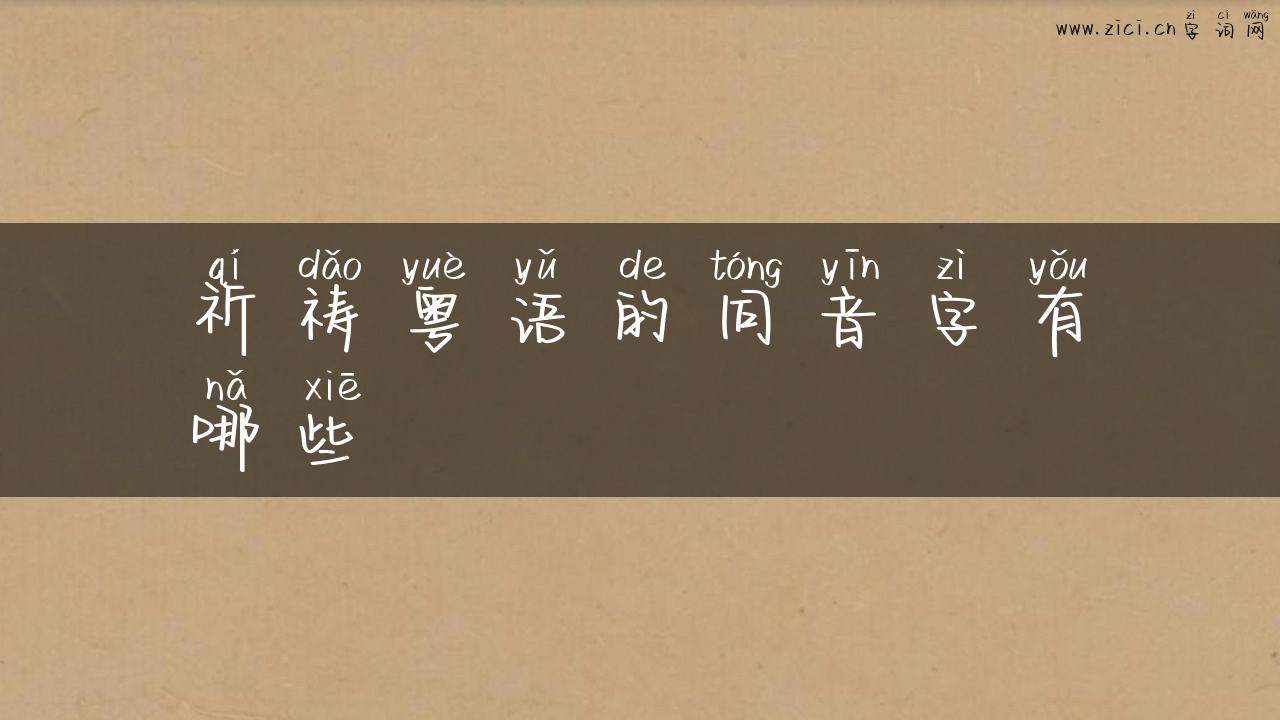 zì cí wǎng
www.zici.cn 字词网
qí dǎo yuè yǔ de tóng yīn zì yǒu
祈祷粤语的同音字有
nǎ xiē
哪些